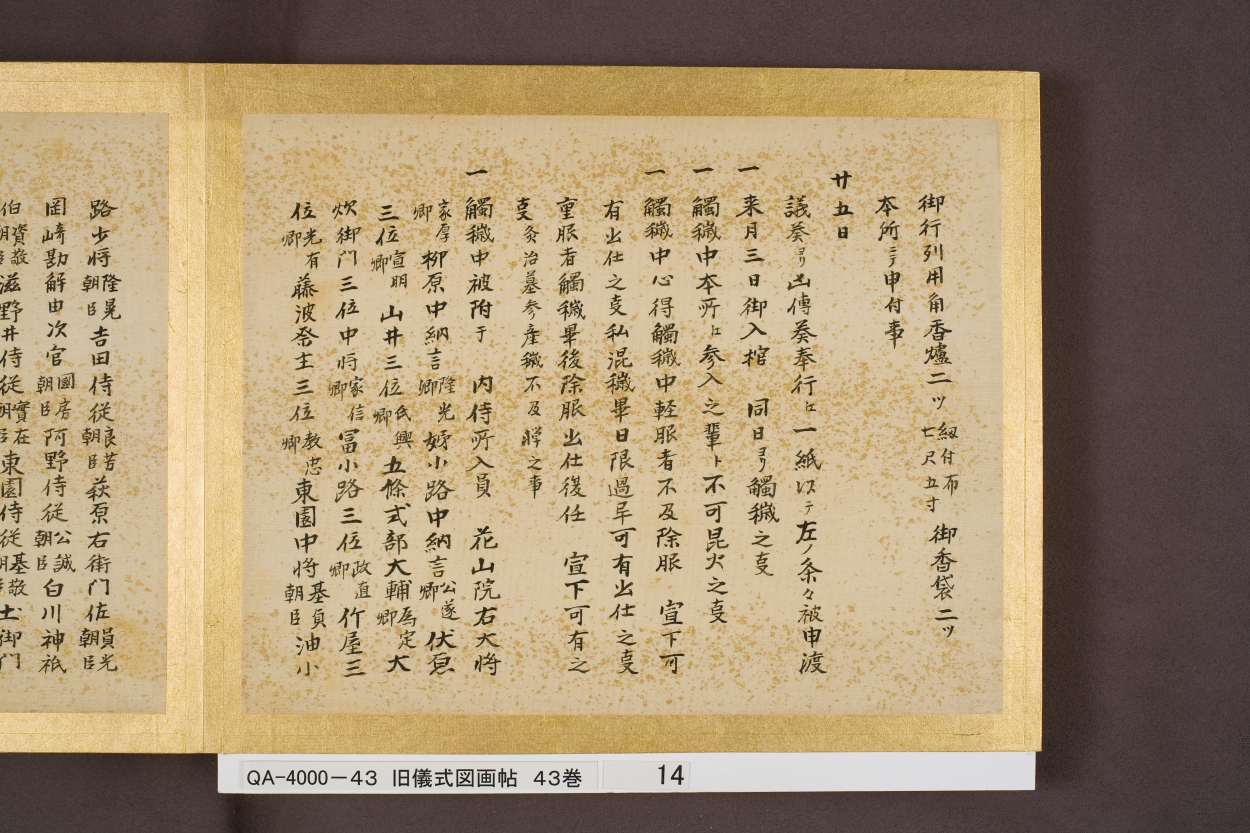 御行列用角香爐二ツ 紐付布七尺五寸 御香袋二ツ
本所ニテ申付事
廿五日
議奏ヨリ凶傳奏奉行江一紙以テ左ノ条々被申渡
一来月三日御入棺 同日ヨリ觸穢之㕝
一觸穢中本所江参入之輩ト不可昆火之㕝
一觸穢中心得觸穢中軽服者不及除服 宣下可
有出仕之㕝私混穢畢日限過早可有出仕之㕝
重服者觸穢畢後除服出仕復任 宣下可有之
㕝灸治墓参産穢不及憚之事
一觸穢中被附于 内侍所入員 花山院右大将
家厚卿 柳原中納言隆光卿 姉小路中納言公遂卿 伏原
三位宣明卿 山井三位氏興卿 五條式部大輔為定卿 大
炊御門三位中将家信卿 冨小路三位政直卿 竹屋三
位光有卿 藤波祭主三位教忠卿 東園中将基貞朝臣 油小
路少将隆晃朝臣 吉田侍従良芳朝臣 萩原右衛門佐員光朝臣
岡﨑勘解由次官國房朝臣 阿野侍従公誠朝臣 白川神祇
伯資敬朝臣 滋野井侍従實在朝臣 東園侍従基敬朝臣 土御門
QA-4000-43 旧儀式図画帖 43巻 14